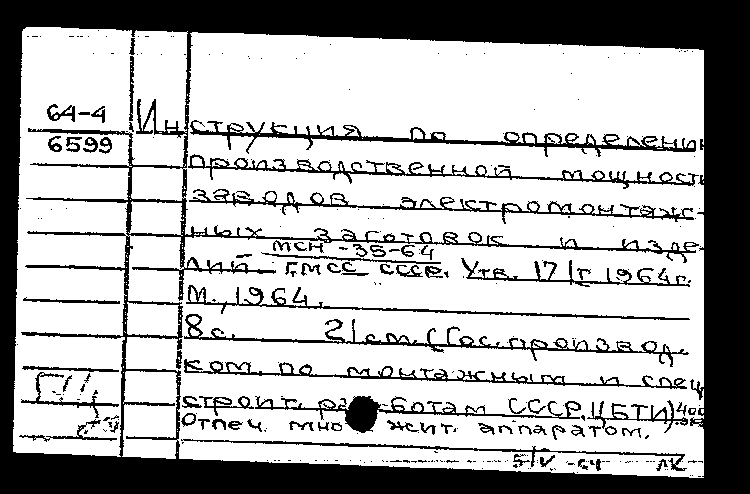 64-4
6599
Инструкция по определени
производственной мощност
заводов электромонтаж-
ных заготовок и изде-
МСН-35-64
лий — ГМСС СССР. Утв. 17/I 1964г.
М., 1964.
8с. 21см. (Гос. производ.
ком. по монтажным и спец.
строит. работам СССР. ЦБТИ) 400
Отпеч. множит. аппаратом.
5/V-64 ЛК